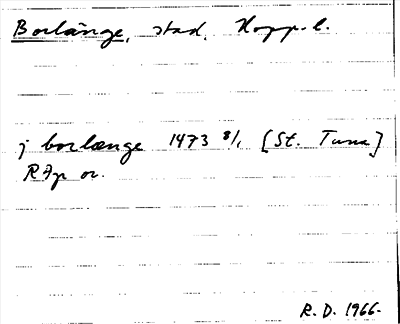 Borlänge, stad, Kopp. l.
j borlænge 1473 8/1 [St. Tuna]
RAp or.
R. D. 1966.